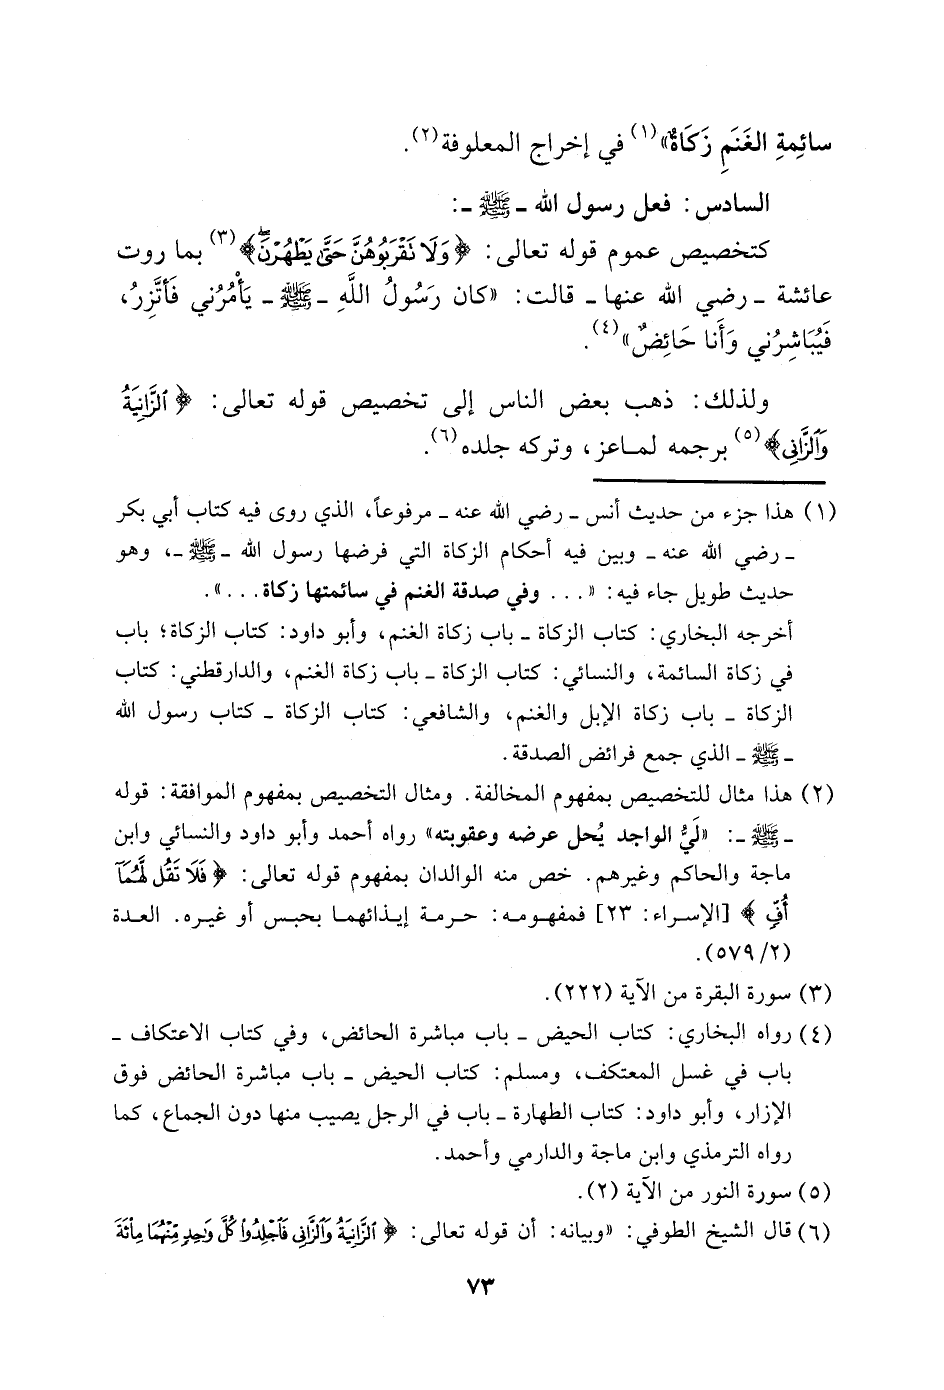 سائِمةِ الغَنَمِ زَكَاةٌ»(١) في إخراج المعلوفة(٢).
السادس: فعل رسول الله ـ ﷺ ـ:
كتخصيص عموم قوله تعالى: ﴿وَلَا نَقْرَبُوهُنَّ حَتَّىٰ يَطْهُرْنَ﴾(٣) بما روت
عائشة ـ رضي الله عنها ـ قالت: «كان رَسُولُ اللَّهِ ـ ﷺ ـ يَأْمُرُني فَأَتَّزِرُ،
فَيُبَاشِرُني وَأَنا حَائِضٌ»(٤).
ولذلك: ذهب بعض الناس إلى تخصيص قوله تعالى: ﴿ٱلزَّانِيَةُ
وَٱلزَّانِي﴾(٥) برجمه لماعز، وتركه جلده(٦).
(١) هذا جزء من حديث أنس ـ رضي الله عنه ـ مرفوعاً، الذي روى فيه كتاب أبي بكر
ـ رضي الله عنه ـ وبين فيه أحكام الزكاة التي فرضها رسول الله ـ ﷺ ـ، وهو
حديث طويل جاء فيه: «... وفي صدقة الغنم في سائمتها زكاة...».
أخرجه البخاري: كتاب الزكاة ـ باب زكاة الغنم، وأبو داود: كتاب الزكاة؛ باب
في زكاة السائمة، والنسائي: كتاب الزكاة ـ باب زكاة الغنم، والدارقطني: كتاب
الزكاة ـ باب زكاة الإبل والغنم، والشافعي: كتاب الزكاة ـ كتاب رسول الله
ـ ﷺ ـ الذي جمع فرائض الصدقة.
(٢) هذا مثال للتخصيص بمفهوم المخالفة. ومثال التخصيص بمفهوم الموافقة: قوله
ـ ﷺ ـ: «لَيُّ الواجد يُحل عرضه وعقوبته» رواه أحمد وأبو داود والنسائي وابن
ماجة والحاكم وغيرهم. خص منه الوالدان بمفهوم قوله تعالى: ﴿فَلَا تَقُل لَّهُمَآ
أُفٍّ﴾ [الإسراء: ٢٣] فمفهومه: حرمة إيذائهما بحبس أو غيره. العدة
(٢/ ٥٧٩).
(٣) سورة البقرة من الآية (٢٢٢).
(٤) رواه البخاري: كتاب الحيض ـ باب مباشرة الحائض، وفي كتاب الاعتكاف ـ
باب في غسل المعتكف، ومسلم: كتاب الحيض ـ باب مباشرة الحائض فوق
الإزار، وأبو داود: كتاب الطهارة ـ باب في الرجل يصيب منها دون الجماع، كما
رواه الترمذي وابن ماجة والدارمي وأحمد.
(٥) سورة النور من الآية (٢).
(٦) قال الشيخ الطوفي: «وبيانه: أن قوله تعالى: ﴿ٱلزَّانِيَةُ وَٱلزَّانِي فَٱجْلِدُوا۟ كُلَّ وَٰحِدٍ مِّنْهُمَا مِا۟ئَةَ
٧٣